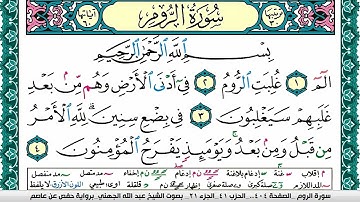 سُورَةُ الرُّومِ
بِسْمِ اللَّهِ الرَّحْمَٰنِ الرَّحِيمِ
الٓمٓ ١ غُلِبَتِ الرُّومُ ٢ فِىٓ أَدْنَى الْأَرْضِ وَهُم مِّنۢ بَعْدِ
غَلَبِهِمْ سَيَغْلِبُونَ ٣ فِى بِضْعِ سِنِينَ ۗ لِلَّهِ الْأَمْرُ
مِن قَبْلُ وَمِنۢ بَعْدُ ۚ وَيَوْمَئِذٍ يَفْرَحُ الْمُؤْمِنُونَ ٤
سورة الروم الصفحة ٤٠٤ الحزب ٤١ الجزء ٢١ بصوت الشيخ عبد الله الجهني برواية حفص عن عاصم